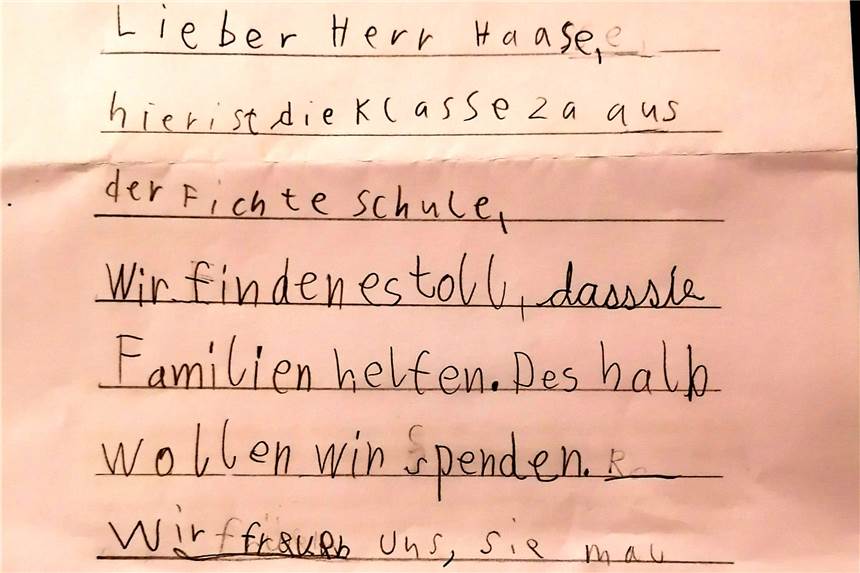 Lieber Herr Haase,
hier ist die Klasse 2a aus
der Fichte schule,
Wir finden es toll, dass sie
Familien helfen. Des halb
wollen wir spenden.
Wir freuen uns, sie mal